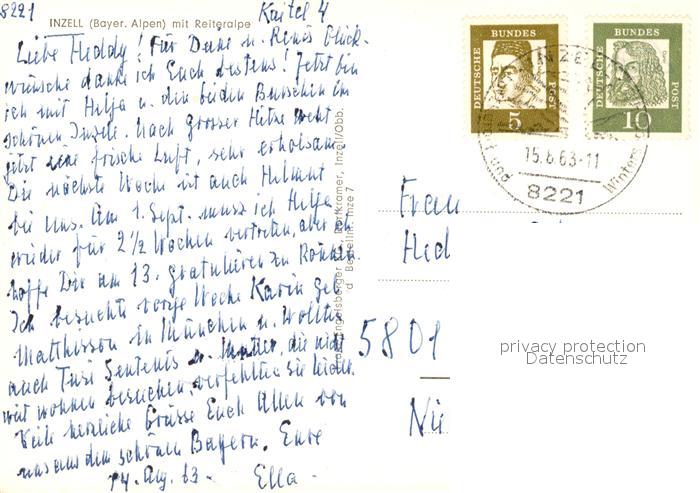 8221
Kaitel 4
INZELL (Bayer. Alpen) mit Reiteralpe
Liebe Heddy! Für Deine u. Renés Glück-
wünsche danke ich Euch bestens! Jetzt bin
ich mit Helja u. den beiden Burschen im
schönen Inzell. Nach grosser Hitze weht
jetzt eine frische Luft, sehr erholsam.
Die nächste Woche ist auch Helmut
bei uns. Am 1. Sept. muss ich Helja
wieder für 2½ Wochen vertreten, aber ich
hoffe Dir am 13. gratulieren zu können.
Ich besuchte vorige Woche Karin geb.
Matthisson in München u. wollte
auch Turi Sentenis u. Mutter, die nicht
weit wohnen besuchen, verfehlte sie leider.
Viele herzliche Grüsse Euch Allen von
uns aus dem schönen Bayern. Eure
14. Aug. 63. Ella.
DEUTSCHE BUNDES POST
5
DEUTSCHE BUNDES POST
10
INZELL
15.8.63-11
8221
und Winters
Frau
Hed
5801
Ni
privacy protection
Datenschutz